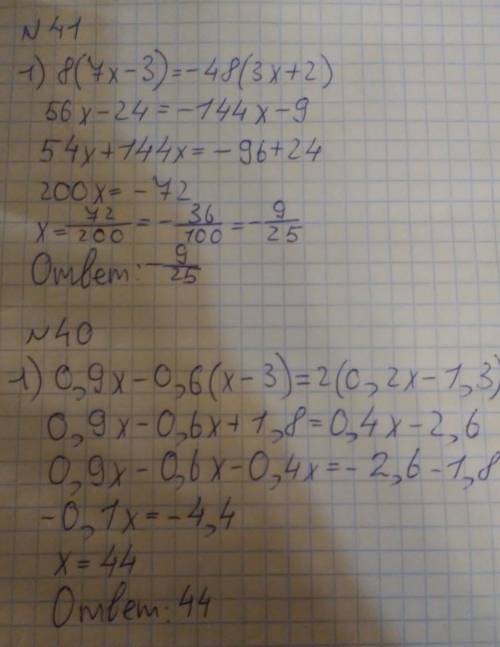 №41
1) 8(7x-3)=-48(3x+2)
56x-24=-144x-9
54x+144x=-96+24
200x=-72
x=72/200=-36/100=-9/25
Ответ: -9/25
№40
1) 0,9x-0,6(x-3)=2(0,2x-1,3)
0,9x-0,6x+1,8=0,4x-2,6
0,9x-0,6x-0,4x=-2,6-1,8
-0,1x=-4,4
x=44
Ответ: 44